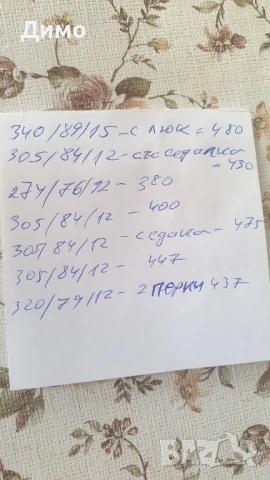 Димо
340/89/15-с люк = 480
305/84/12-със седалка
= 430
274/76/12-380
305/84/12-400
305 84/12-седалка-475
305/84/12-447
320/79/12-2 перки 437
BAZAR